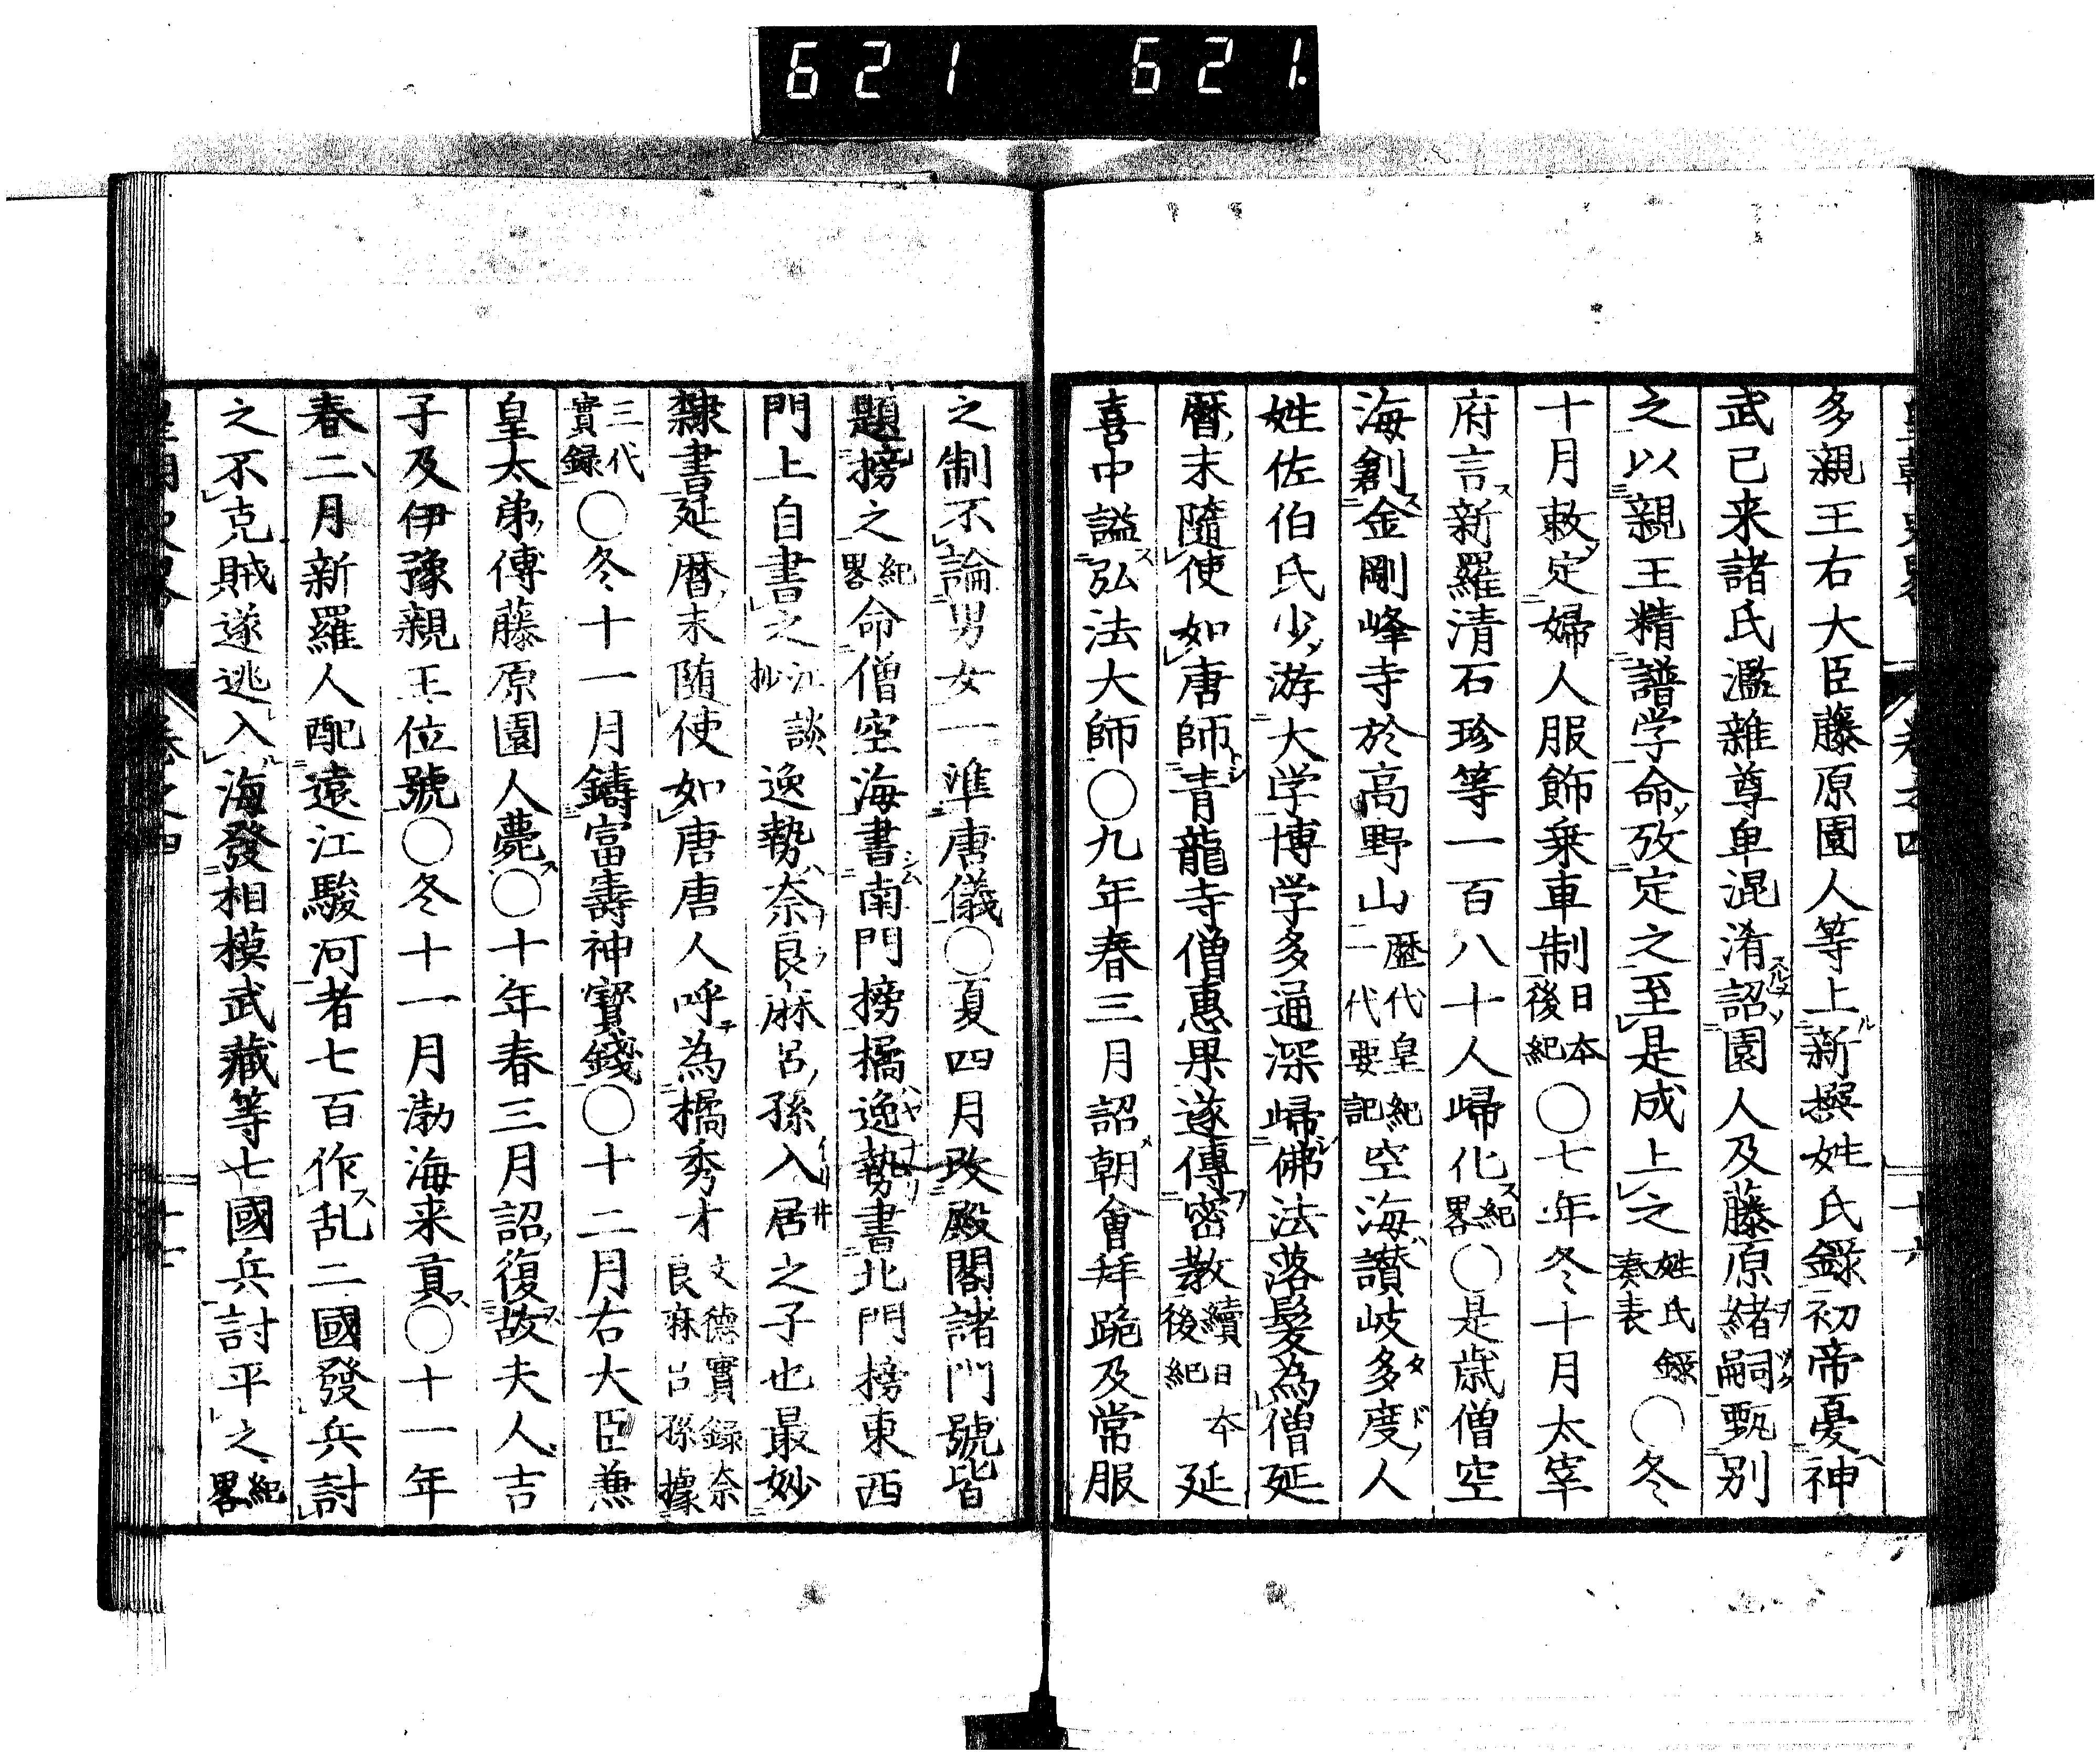 621 621.
多親王右大臣藤原園人等上新撰姓氏錄初帝憂神
武已来諸氏濫雜尊卑混淆詔園人及藤原緒嗣甄别
之以親王精譜学命攷定之至是成上之姓氏錄奏表〇冬
十月敕定婦人服飾乗車制日本後紀〇七年冬十月太宰
府言新羅清石珍等一百八十人歸化紀畧〇是歳僧空
海創金剛峰寺於高野山歷代皇紀二代要記空海讃岐多度人
姓佐伯氏少游大学博学多通深歸佛法落髮為僧延
暦末隨使如唐師青龍寺僧惠果遂傳密教續日本後紀延
喜中謚弘法大師〇九年春三月詔朝會拜跪及常服
之制不論男女一準唐儀〇夏四月改殿閣諸門號皆
題榜之紀畧命僧空海書南門榜橘逸勢書北門榜東西
門上自書之江談抄逸勢奈良麻呂孫入居之子也最妙
隸書延暦末随使如唐唐人呼為橘秀才文德實録奈良麻呂孫據
三代實録〇冬十一月鑄富壽神寳錢〇十二月右大臣兼
皇太弟傳藤原園人薨〇十年春三月詔復故夫人吉
子及伊豫親王位號〇冬十一月渤海来貢〇十一年
春二月新羅人配遠江駿河者七百作乱二國發兵討
之不克賊遂逃入海發相模武藏等七國兵討平之紀畧